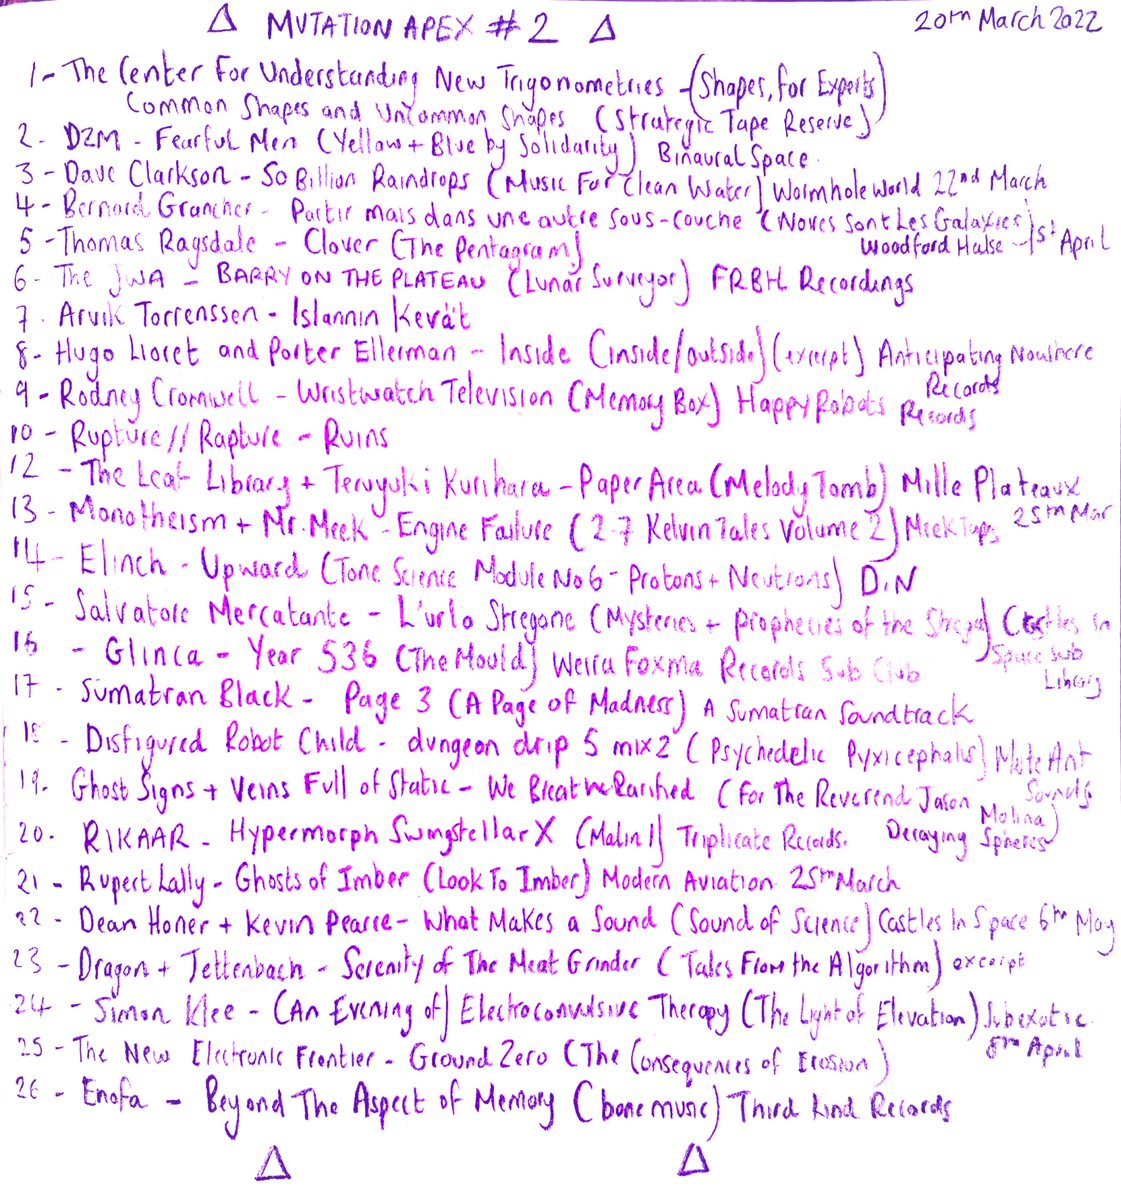 △ MUTATION APEX #2 △ 20TH March 2022
1- The Center For Understanding New Trigonometries - (Shapes, for Experts)
Common Shapes and Uncommon Shapes (Strategic Tape Reserve)
2. DZM - Fearful Men (Yellow + Blue by Solidarity) Binaural Space.
3 - Dave Clarkson - 50 Billion Raindrops (Music For Clean Water) Wormhole World 22nd March
4 - Bernard Grancher - Partir mais dans une autre sous-couche (Noves Sont Les Galaxies)
5 - Thomas Ragsdale - Clover (The Pentagram) Woodford Halse - 1st April
6 - The JWA - BARRY ON THE PLATEAU (Lunar Surveyor) FRBH Recordings
7. Arvik Torrenssen - Islannin Kevät
8 - Hugo Lioret and Porter Ellerman - Inside (inside/outside) (excerpt) Anticipating Nowhere
Records
9 - Rodney Cromwell - Wristwatch Television (Memory Box) Happy Robots Records
10 - Rupture // Rapture - Ruins
12 - The Leaf Library + Teruyuki Kurihara - Paper Area (Melody Tomb) Mille Plateaux
25th Mar
13 - Monotheism + Mr. Meek - Engine Failure (2.7 Kelvin Tales Volume 2) Meek Taps
14 - Elinch - Upward (Tone Science Module No 6 - Protons + Neutrons) DiN
15 - Salvatore Mercatante - L'urlo Stregone (Mysteries + Prophecies of the Strega) Castles in
Space Sub
Library
16 - Glinca - Year 536 (The Mould) Weira Foxma Records Sub Club
17 - Sumatran Black - Page 3 (A Page of Madness) A Sumatran Soundtrack
18 - Disfigured Robot Child - dungeon drip 5 mix2 (Psychedelic Pyxicephalis) Mute Ant
Sounds.
19. Ghost Signs + Veins Full of Static - We Breathe Rarified (For The Reverend Jason
Molina)
Decaying Spheres
20. RIKAAR - Hypermorph Swingstellar X (Malin 1) Triplicate Records.
21 - Rupert Lally - Ghosts of Imber (Look To Imber) Modern Aviation 25th March
22 - Dean Honer + Kevin Pearce - What Makes a Sound (Sound of Science) Castles In Space 6th May
23 - Dragon + Jettenbach - Serenity of The Meat Grinder (Tales From the Algorithm) excerpt
24 - Simon Klee - (An Evening of) Electroconvulsive Therapy (The Light of Elevation) Subexotic.
8th April
25 - The New Electronic Frontier - Ground Zero (The Consequences of Erosion)
26 - Enofa - Beyond The Aspect of Memory (bone music) Third Kind Records
△ △